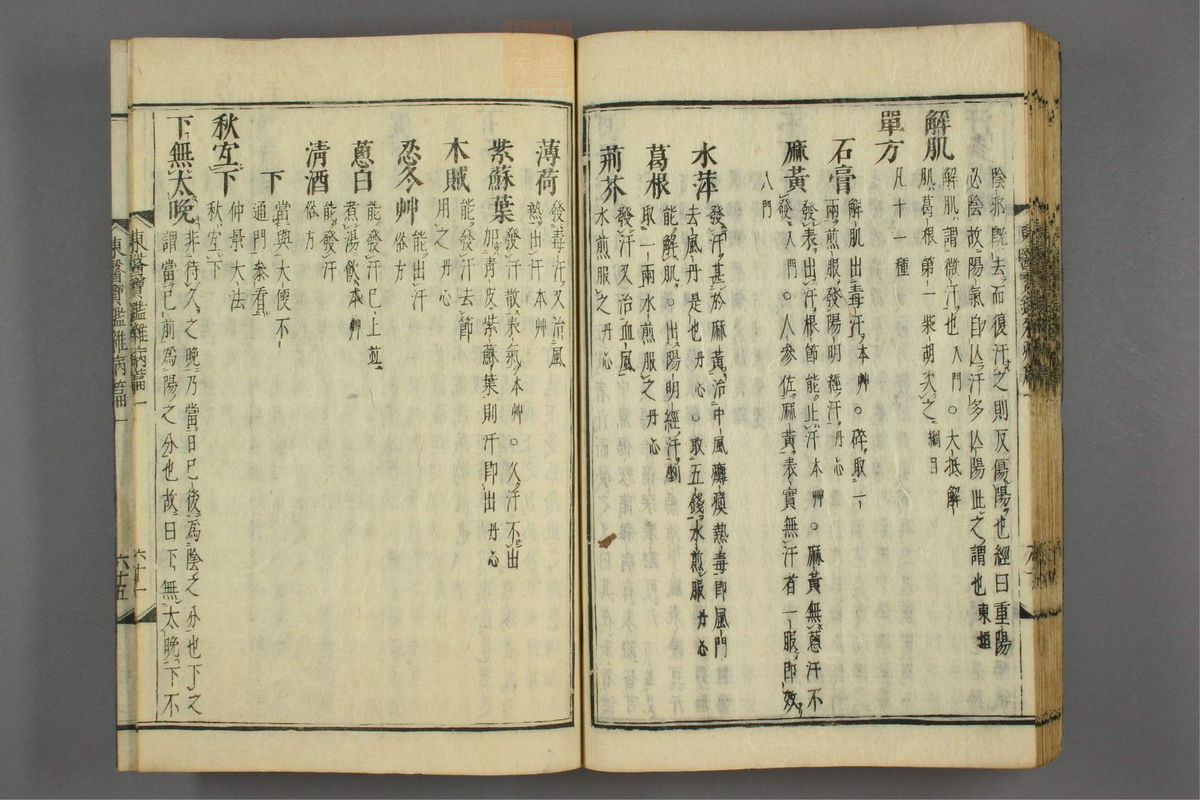 陰邪旣去而復汗之則反傷陽也經曰重陽
必陰故陽氣自亾汗多亾陽此之謂也東垣
解肌
解肌謂微汗也入門○大抵解
肌葛根第一柴胡次之綱目
單方
凡十一種
石膏
解肌出毒汗本艸○碎取一
兩煎服發陽明經汗丹心
麻黃
發表出汗根節能止汗本艸○麻黃無蔥汗不
發入門○人參佐麻黃表實無汗者一服即效
入門
水萍
發汗甚於麻黃治中風癱瘓熱毒即風門
去風丹是也丹心○取五錢水煎服丹心
葛根
能解肌出陽明經汗
取一兩水煎服之丹心
荊芥
發汗又治血風
水煎服之丹心
薄荷
發毒汗又治風
熱出汗本艸
紫蘇葉
發汗散表氣本艸○久汗不出
加靑皮紫蘇葉則汗即出丹心
木賊
能發汗去節
用之本艸
忍冬艸
能出汗
俗方
蔥白
能發汗已上並
煮湯飲本艸
淸酒
能發汗
俗方
下
當與大便不
通門參看
秋宜下
仲景大法
秋宜下
下無太晚
非待久之晚乃當日巳後爲陰之分也下之
謂當巳前爲陽之分也故曰下無太晚下不
東醫寶鑑雜病篇一
東醫寶鑑雜病篇一 六十五